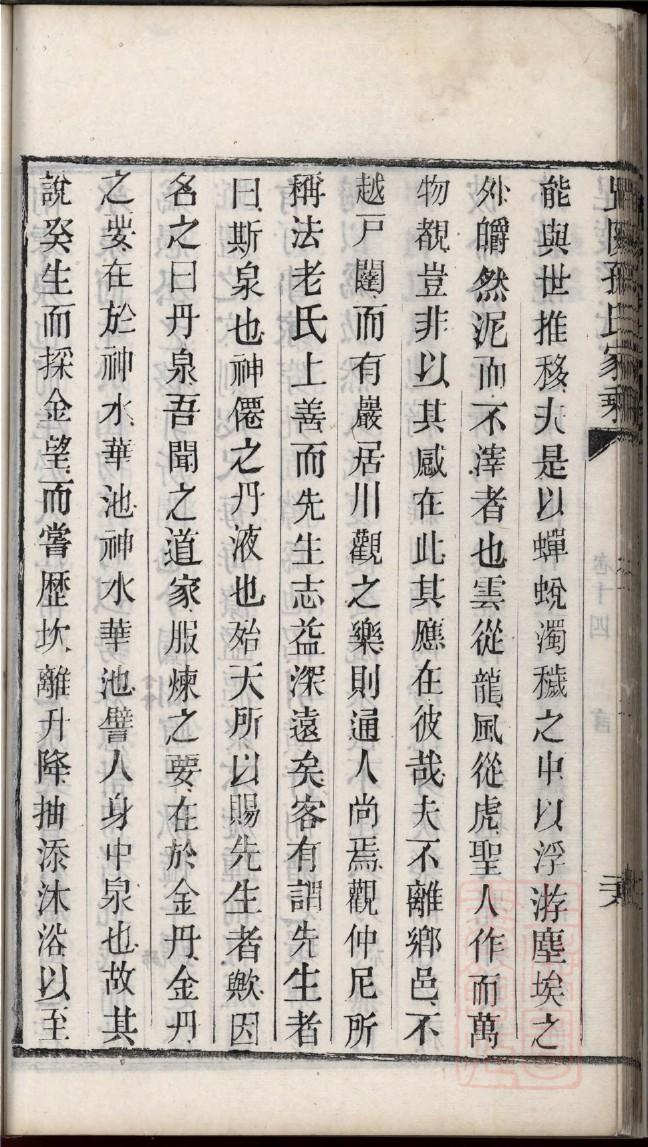 能與世推移夫是以蟬蛻濁穢之中以浮游塵埃之
外皭然泥而不滓者也雲從龍風從虎聖人作而萬
物覩豈非以其感在此其應在彼哉夫不離鄉邑不
越戸闥而有巖居川觀之樂則通人尚焉觀仲尼所
稱法老氏上善而先生志益深遠矣客有謂先生者
曰斯泉也神僊之丹液也殆天所以賜先生者歟因
名之曰丹泉吾聞之道家服煉之要在於金丹金丹
之要在於神水華池神水華池譬人身中泉也故其
說癸生而採金望而嘗歷坎離升降抽添沐浴以至